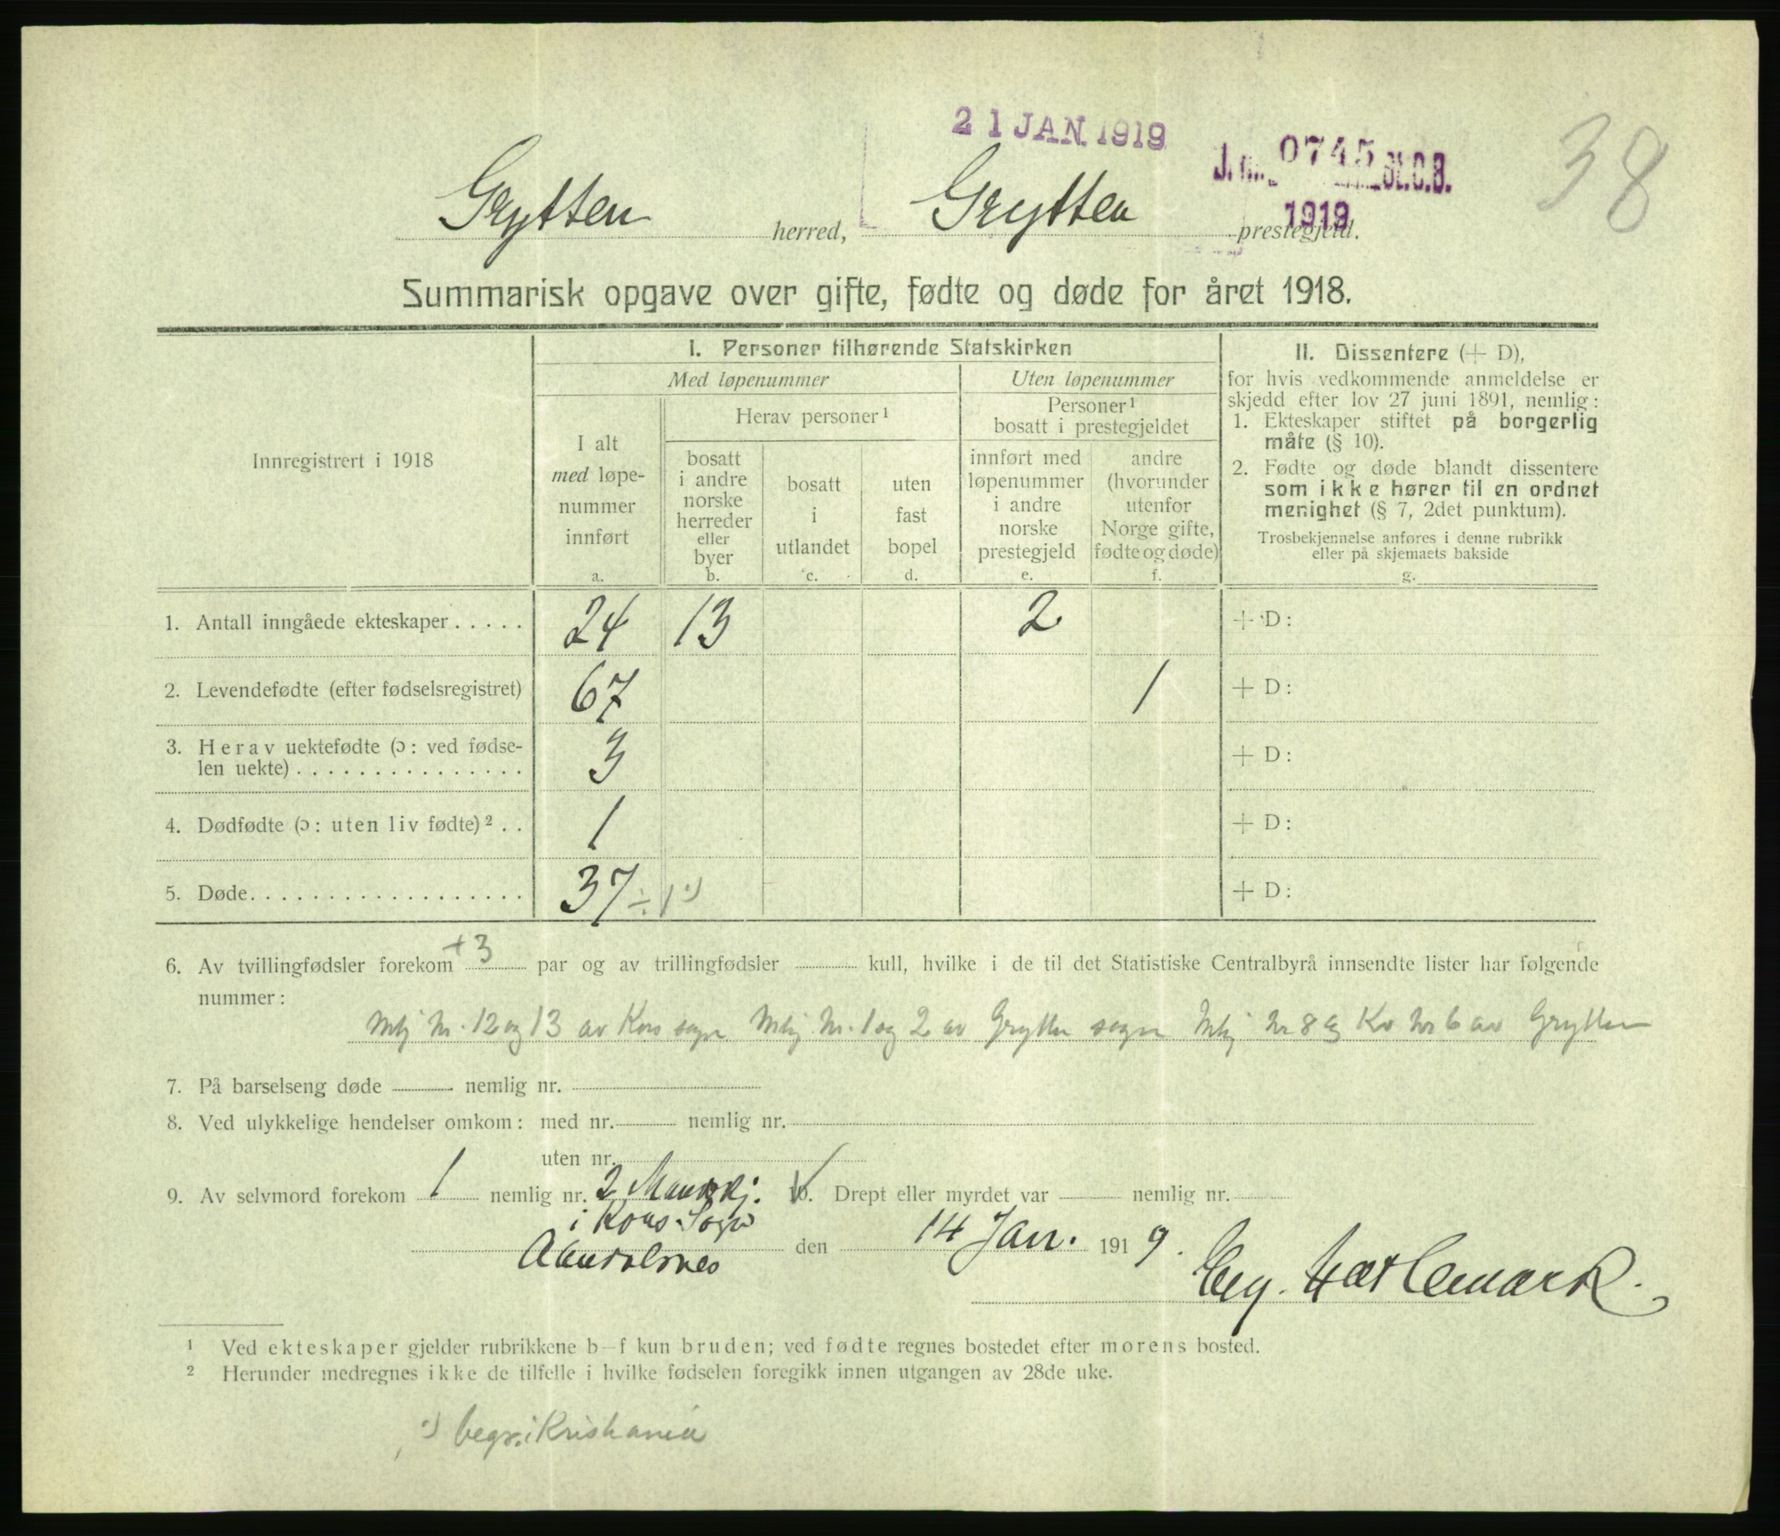 21 JAN. 1919
0745 St.C.B.
1919
38
Grytten herred, Grytten prestegjeld.
Summarisk opgave over gifte, fødte og døde for året 1918.
Innregistrert i 1918
I. Personer tilhørende Statskirken
Med løpenummer
Uten løpenummer
I alt
med løpe-
nummer
innført
a.
Herav personer ¹
bosatt
i andre
norske
herreder
eller
byer
b.
bosatt
i
utlandet
c.
uten
fast
bopel
d.
Personer ¹
bosatt i prestegjeldet
innført med
løpenummer
i andre
norske
prestegjeld
e.
andre
(hvorunder
utenfor
Norge gifte,
fødte og døde)
f.
II. Dissentere (+ D),
for hvis vedkommende anmeldelse er
skjedd efter lov 27 juni 1891, nemlig:
1. Ekteskaper stiftet på borgerlig
måte (§ 10).
2. Fødte og døde blandt dissentere
som ikke hører til en ordnet
menighet (§ 7, 2det punktum).
Trosbekjennelse anføres i denne rubrikk
eller på skjemaets bakside
g.
1. Antall inngåede ekteskaper . . . . . 24 13 2 + D:
2. Levendefødte (efter fødselsregistret) 67 1 + D:
3. Herav uektefødte (ɔ: ved fødse-
len uekte) . . . . . . . . . . . . . . . 3 + D:
4. Dødfødte (ɔ: uten liv fødte) ² . . 1 + D:
5. Døde. . . . . . . . . . . . . . . . . . 37 ÷ 1 ¹) + D:
6. Av tvillingfødsler forekom +3 par og av trillingfødsler kull, hvilke i de til det Statistiske Centralbyrå innsendte lister har følgende
nummer:
Mkj nr. 12 og 13 av Kors sogn Mkj. nr. 1 og 2 av Grytten sogn Mkj nr 8 og Kv nr 6 av Grytten
7. På barselseng døde nemlig nr.
8. Ved ulykkelige hendelser omkom: med nr. nemlig nr.
uten nr.
9. Av selvmord forekom 1 nemlig nr. 2 Mankj. 10. Drept eller myrdet var nemlig nr.
i Kors Sogn
Aandalsnes den 14 Jan. 1919.
¹ Ved ekteskaper gjelder rubrikkene b—f kun bruden; ved fødte regnes bostedet efter morens bosted.
² Herunder medregnes ikke de tilfelle i hvilke fødselen foregikk innen utgangen av 28de uke.
¹) begr. i Kristiania